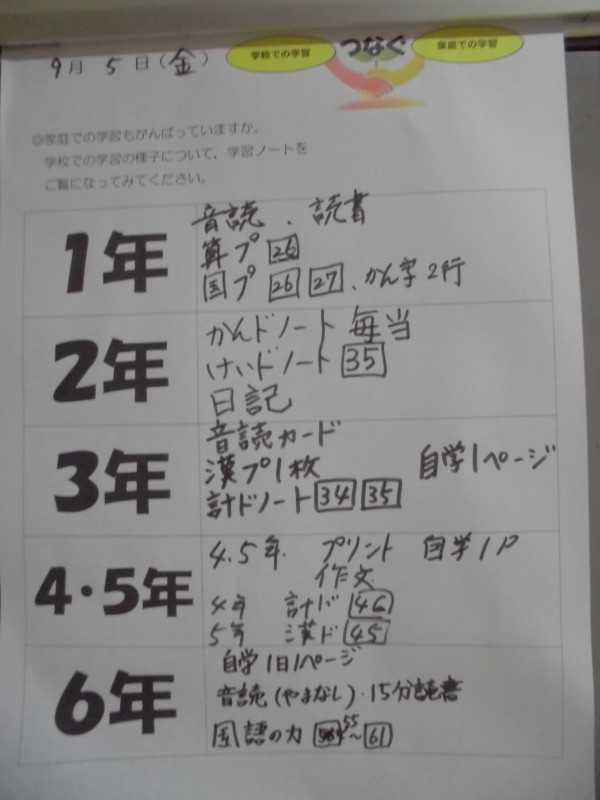 9月 5日(金)
学校での学習 つなぐ 家庭での学習
◎家庭での学習もがんばっていますか。
学校での学習の様子について、学習ノートを
ご覧になってみてください。
1年
音読、読書
算プ 26
国プ 26 27、かん字2行
2年
かんドノート 毎当
けいドノート 35
日記
3年
音読カード
漢プ1枚 自学1ページ
計ドノート 34 35
4・5年
4.5年. プリント 自学1P
作文
4年 計ド 46
5年 漢ド 45
6年
自学1日1ページ
音読(やまなし)・15分読書
国語の力 55~61